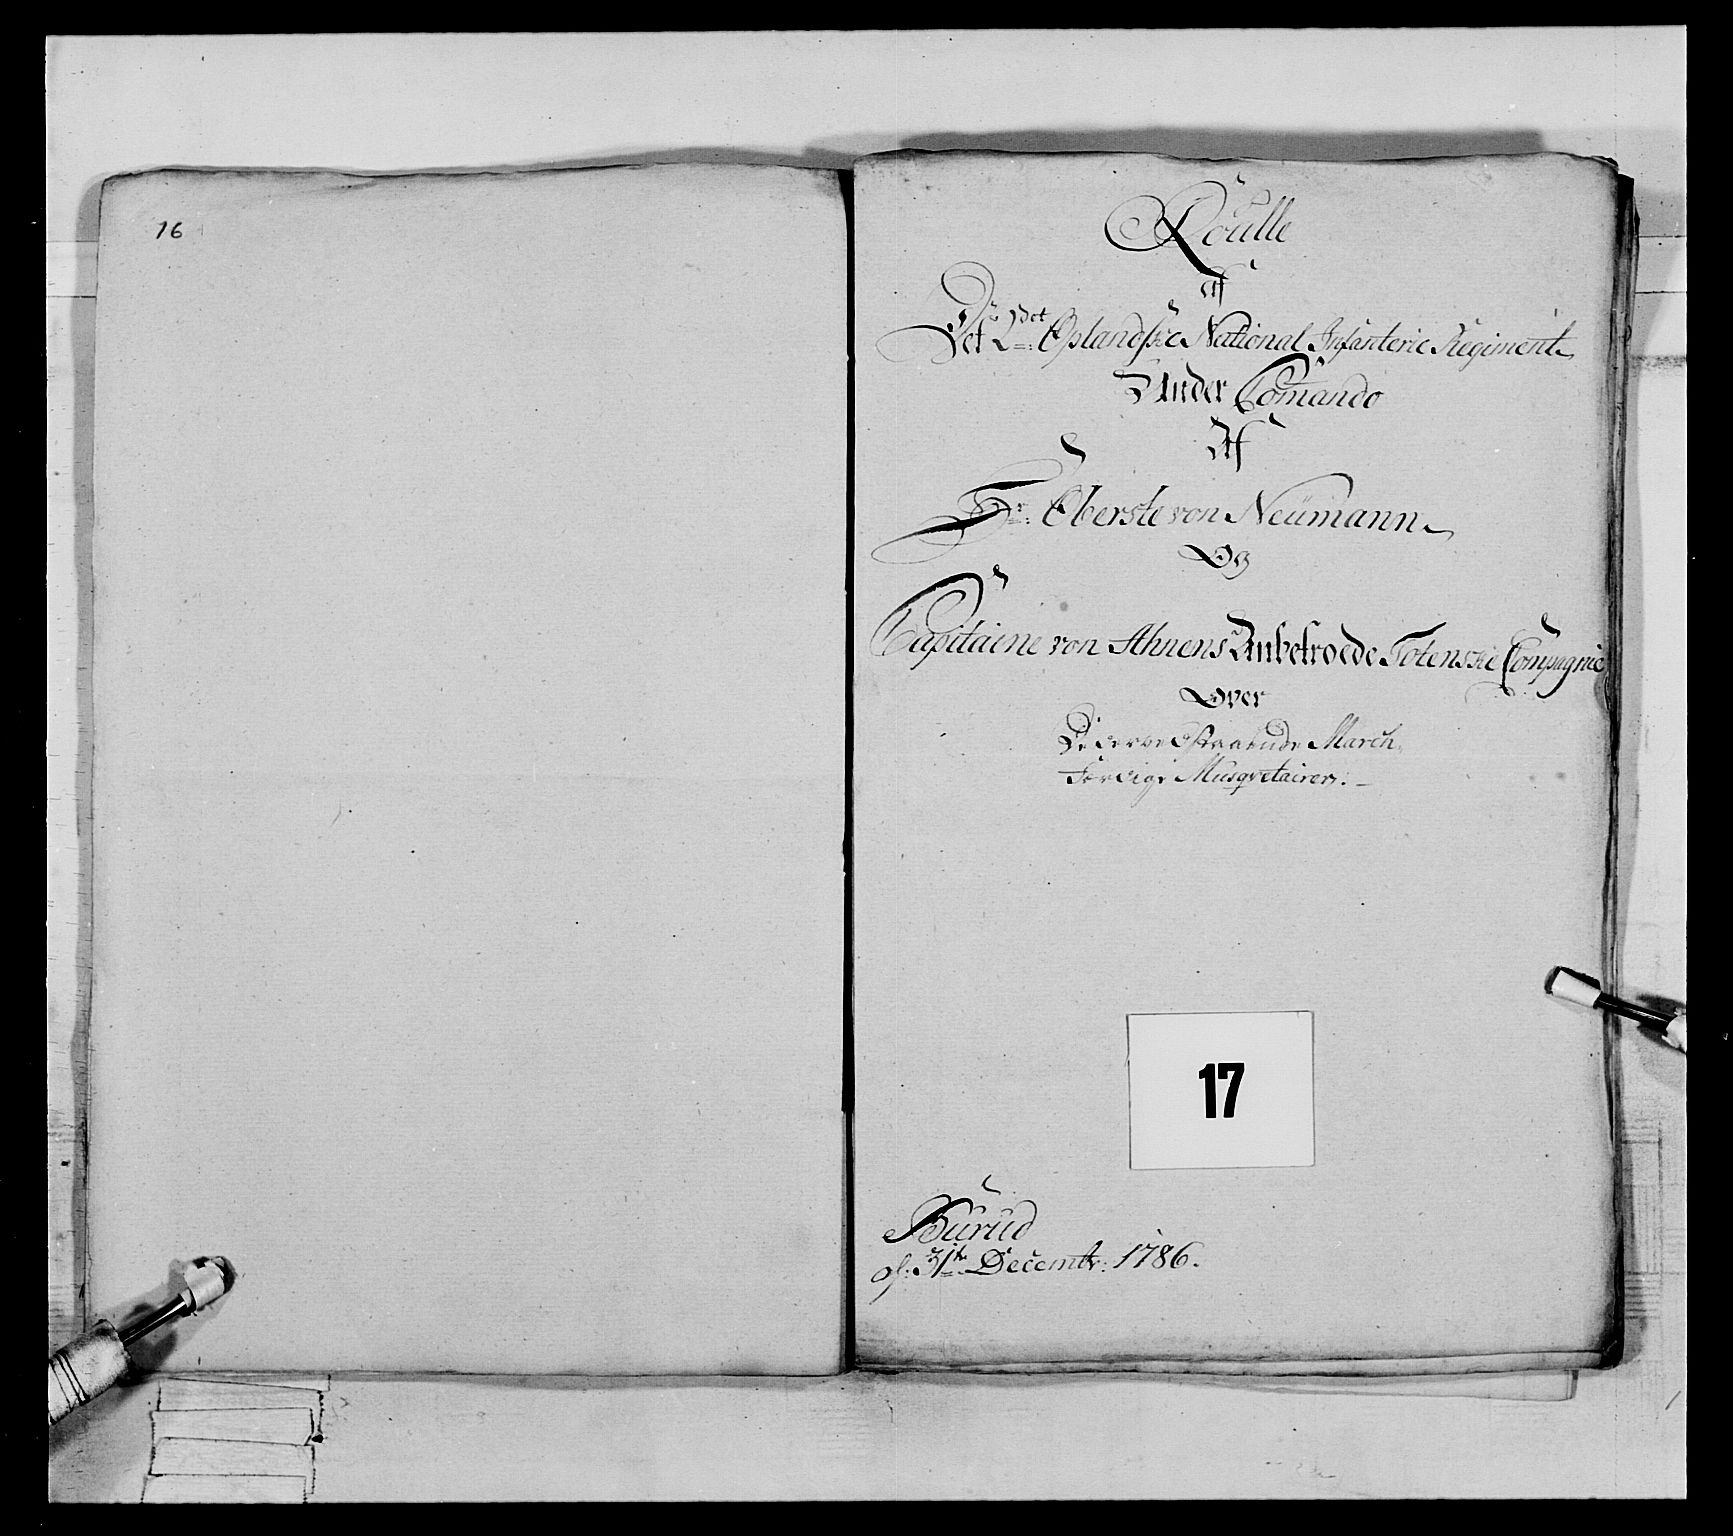 16
Roulle
af
Det 2det Oplandske National Infanterie Regiment
Under Comando
Af
Hr: Oberste von Neümann
Og
Capitaine von Ahnens Anbetroede Totenske Compagnie
Over
De derved staaende March
færdige Musqvetairer:
17
Burud
d: 31te Decembr: 1786.